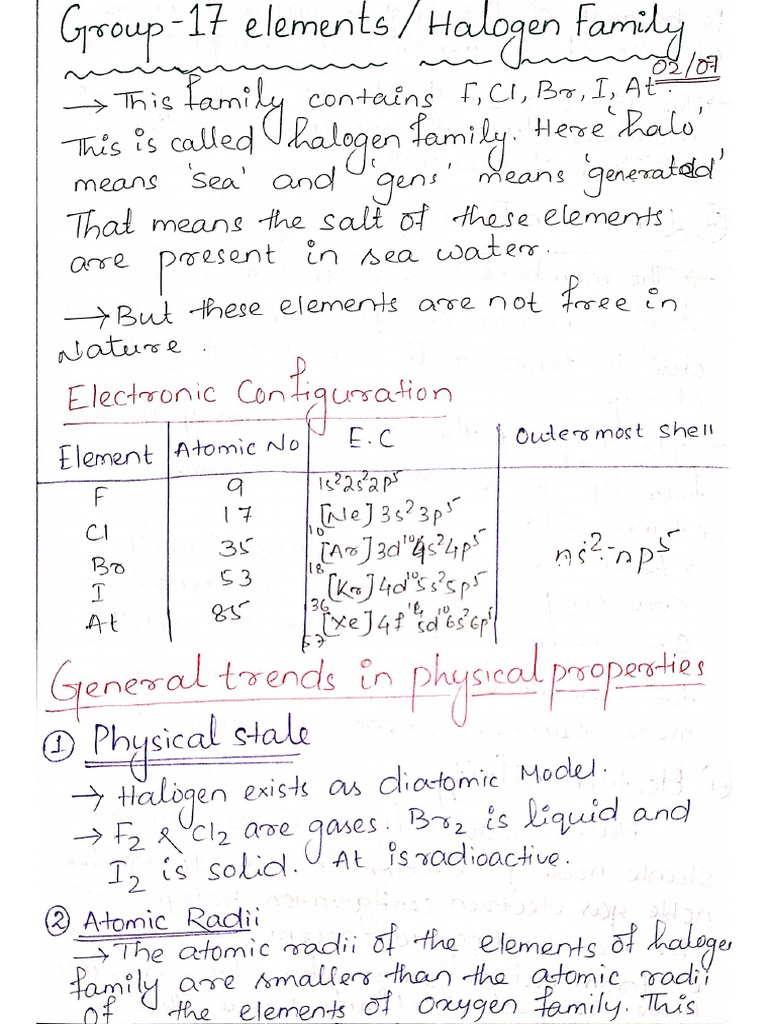 Group-17 elements / Halogen Family
02/07
→ This family contains F, Cl, Br, I, At.
This is called halogen family. Here 'halo'
means 'sea' and 'gens' means 'generated'
That means the salt of these elements
are present in sea water.
→ But these elements are not free in
Nature.
Electronic Configuration
Element Atomic No E.C Outermost shell
F 9 1s²2s²2p⁵
Cl 17 [Ne]3s²3p⁵
10
Br 35 [Ar]3d¹⁰4s²4p⁵ ns²-np⁵
18
I 53 [Kr]4d¹⁰5s²5p⁵
36
At 85 [Xe]4f¹⁴5d¹⁰6s²6p⁵
General trends in physical properties
① Physical state
→ Halogen exists as diatomic Model.
→ F₂ & Cl₂ are gases. Br₂ is liquid and
I₂ is solid. At is radioactive.
② Atomic Radii
→ The atomic radii of the elements of haloge
family are smaller than the atomic radii
of the elements of oxygen family. This